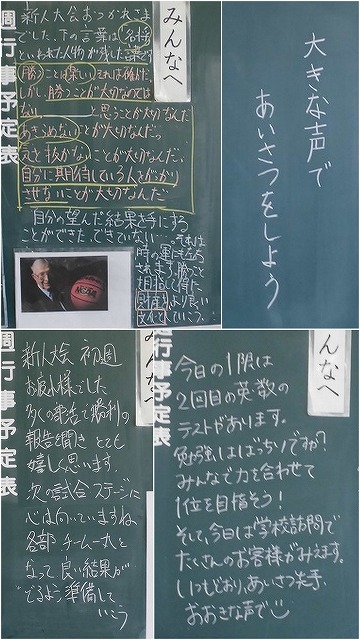 みんなへ
週行事予定表
新人大会おつかれさま
でした。下の言葉は「名将」
といわれた人物が残した言葉です
勝つことは楽しい。それは確かだ。
しかし、勝つことが大切なのでは
ない
と思うことが大切なんだ
あきらめないことが大切なんだ。
気を抜かないことが大切なんだ。
自分に期待している人をがっかり
させないことが大切なんだ
自分の望んだ結果を手にする
ことができた、できていない…それは
時の運にも左右
されます。勝つこと
より良い
文化を
いこう。
大きな声で
あいさつをしよう
みんなへ
週行事予定表
新人大会 初週
お疲れ様でした
多くの部活で勝利の
報告を聞き とても
嬉しく思います。
次の試合 ステージに
心は向いていますね
各部 チーム一丸と
なって 良い結果が
でるよう準備して
いこう
みんなへ
週行事予定表
今日の1限は
2回目の英数の
テストがあります。
勉強はばっちりですか?
みんなで力を合わせて
1位を目指そう!
そして、今日は学校訪問で
たくさんのお客様がみえます。
いつもどおり、あいさつ先手、
おおきな声で